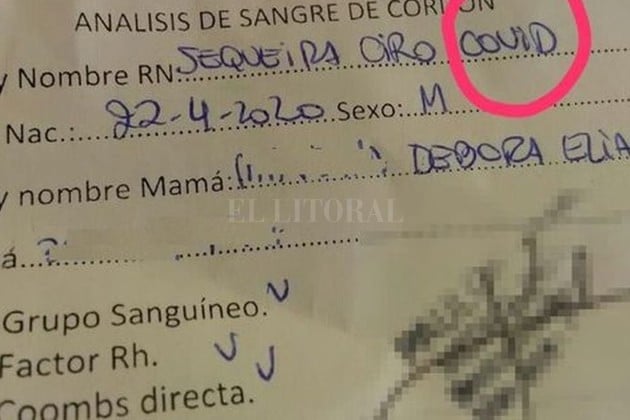 ANALISIS DE SANGRE DE CORDON
y Nombre RN: SEQUEIRA CIRO COVID
Nac.: 22-4-2020 Sexo: M
y nombre Mamá: DEBORA ELIA
EL LITORAL
á
Grupo Sanguíneo.
Factor Rh.
Coombs directa.